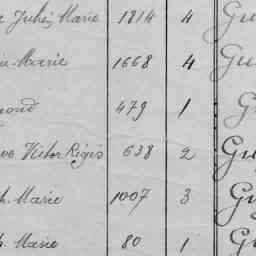 Jules Marie 1814 4 Gu
Marie 1668 4 Gu
mond 479 1 G
Victor Régis 638 2 Gu
h. Marie 1007 3 Gu
h. Marie 80 1 Gu